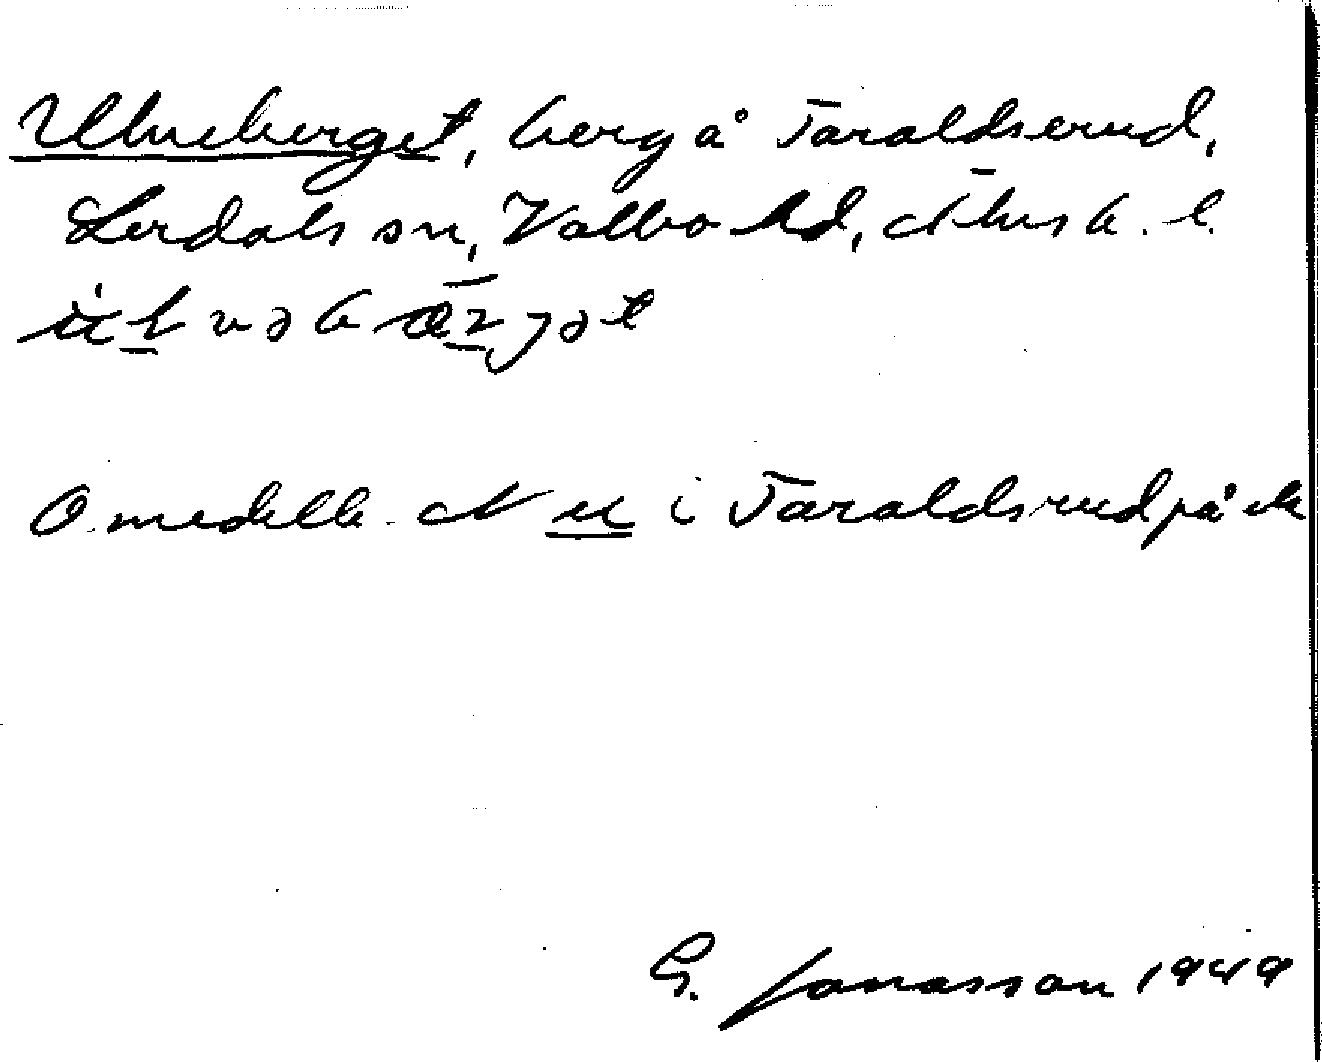 Ulveberget, berg å Taraldserud,
Lerdals sn, Valbo hd, Älvsb. l.
Omedelb. N u i Taraldsrud på ek
G. Jonasson 1949